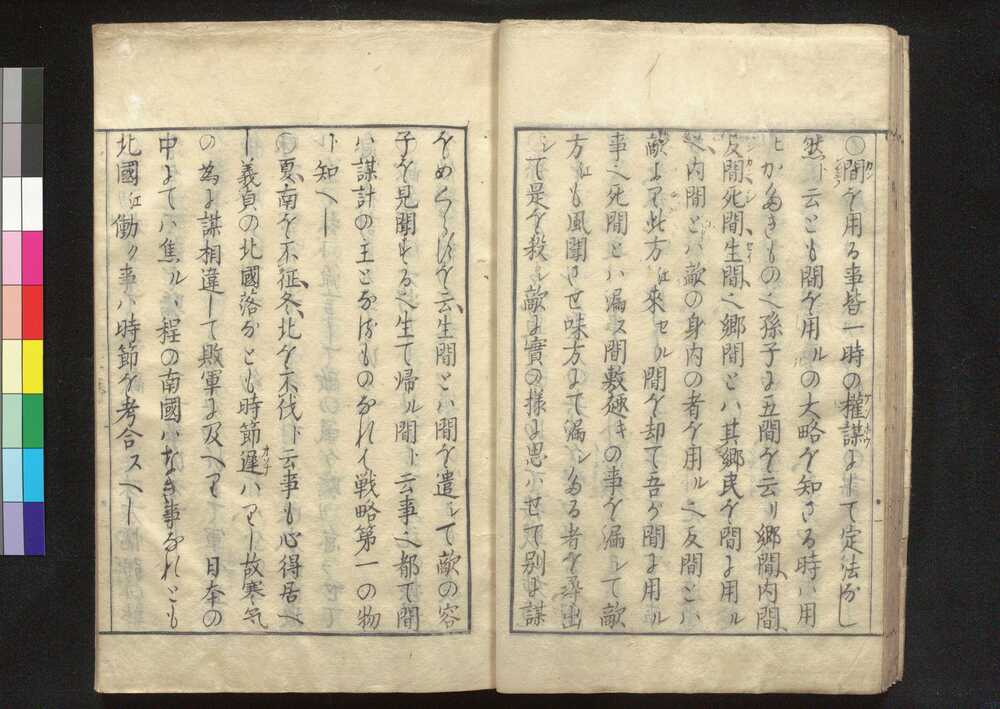 ○間を用る事皆一時の權謀にして定法なし
然ト云とも間を用ルの大略を知さる時ハ用
ヒかたきもの也孫子に五間を云リ郷間、内間、
反間死間生間也郷間とハ其郷民を間に用ル
也内間とハ敵の身内の者を用ル也反間とハ
敵より此方江來セル間を却て吾が間に用ル
事也死間とハ漏ス間敷
キの事を漏シて敵
方江も風聞させ味方にて漏シたる者を尋出
シて是を殺シ敵に實の様に思ハせて別に謀
をめくらすを云、生間とハ間を遣シて敵の容
子を見聞する也生て帰ル間ト云事也都て間
ハ謀計の主となすものなれハ戦略第一の物
ト知ヘし
○夏、南を不征、冬、北を不伐ト云事も心得居ヘ
し義貞の北國落なとも時節遅ハりし故寒気
の為に謀相違して敗軍に及ヘり 日本の
中にてハ焦ルヽ程の南國ハなき事なれとも
北國江働ク事ハ時節を考合スヘし